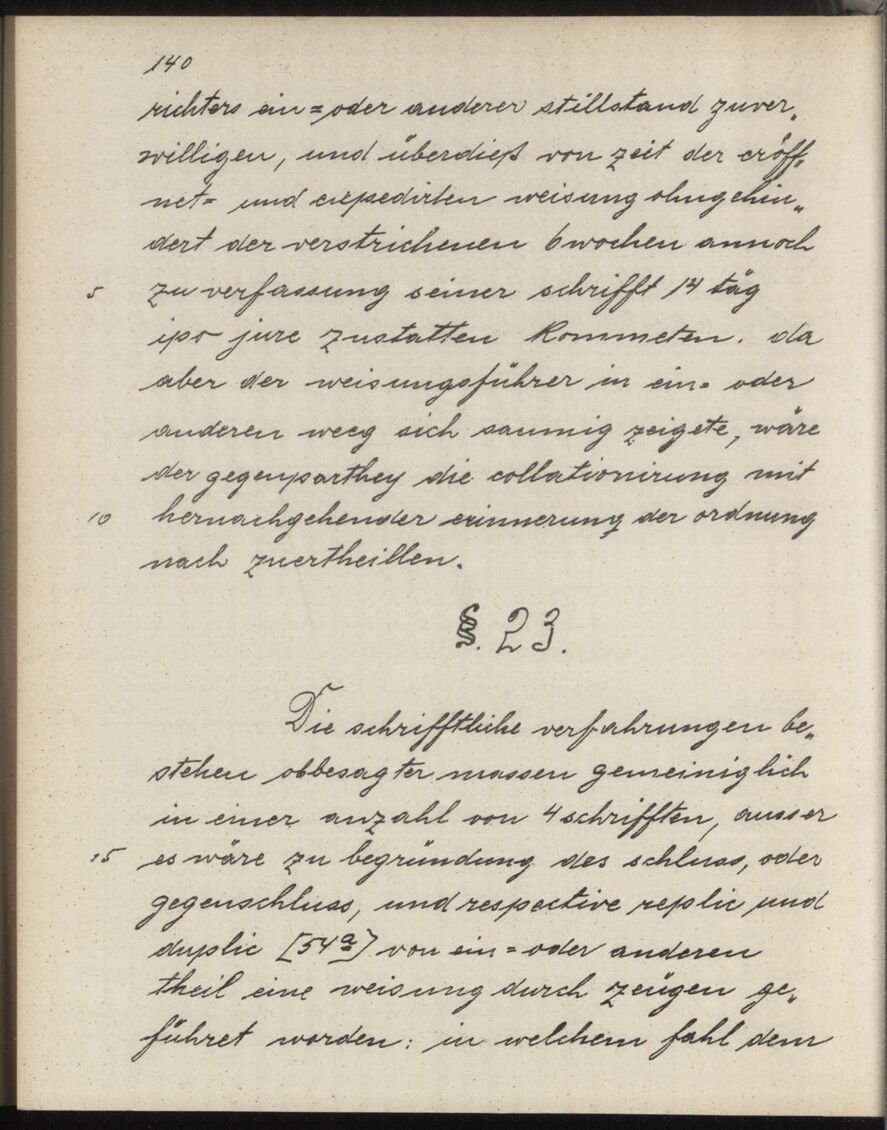 140
richters ein= oder anderer stillstand zuver„
willigen, und überdieß von zeit der eröff„
net= und expedirten weisung ohngehin„
dert der verstrichenen 6 wochen annoch
5 zu verfassung seiner schrifft 14 täg
ipso jure zustatten kommeten. da
aber der weisungsführer in ein= oder
anderen weeg sich saumig zeigete, wäre
der gegenparthey die collationirung mit
10 hernachgehender erinnerung der ordnung
nach zuertheillen.
§. 23.
Die schrifftliche verfahrungen be„
stehen obbesagter massen gemeiniglich
in einer anzahl von 4 schrifften, ausser
15 es wäre zu begründung des schluss, oder
gegenschluss, und respective replic und
duplic [54a] von ein= oder anderen
theil eine weisung durch zeügen ge„
führet worden: in welchem fahl dem